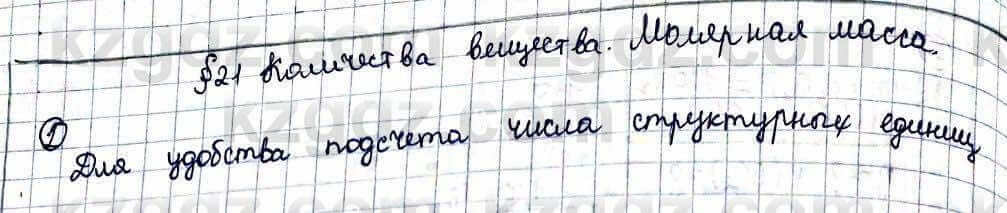 §21 Количества вещества. Молярная масса.
① Для удобства подсчета числа структурных единиц